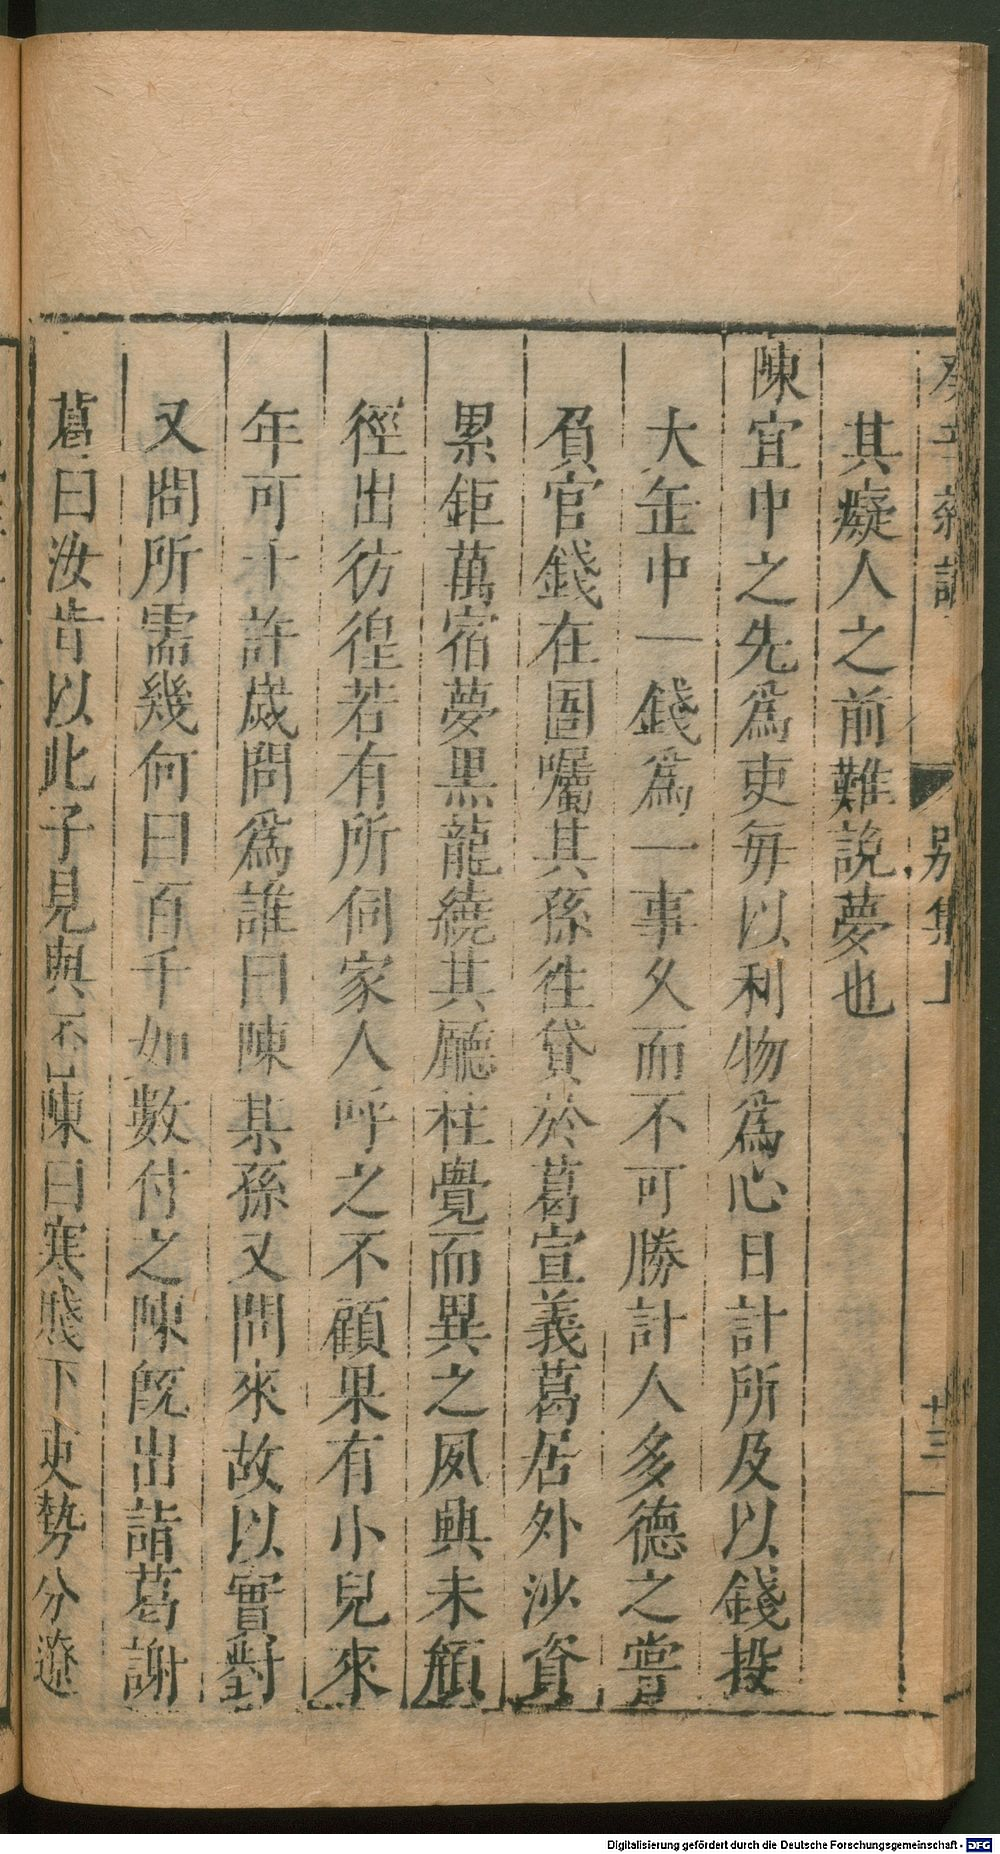 癸辛雜識 別集上 十三
其癡人之前難説夢也
陳宜中之先爲吏毎以利物爲心日計所及以錢投
大缶中一錢爲一事久而不可勝計人多德之嘗
負官錢在圄囑其孫徃貸於葛宣義葛居外沙資
累鉅萬宿夢黒龍繞其廳柱覺而異之夙興未頮
徑出彷徨若有所伺家人呼之不顧果有小兒來
年可十許歲問爲誰曰陳某孫又問來故以實對
又問所需幾何曰百千如數付之陳旣出詣葛謝
葛曰汝肯以此子見與否陳曰寒賤下吏勢分遼
Digitalisierung gefördert durch die Deutsche Forschungsgemeinschaft - DFG